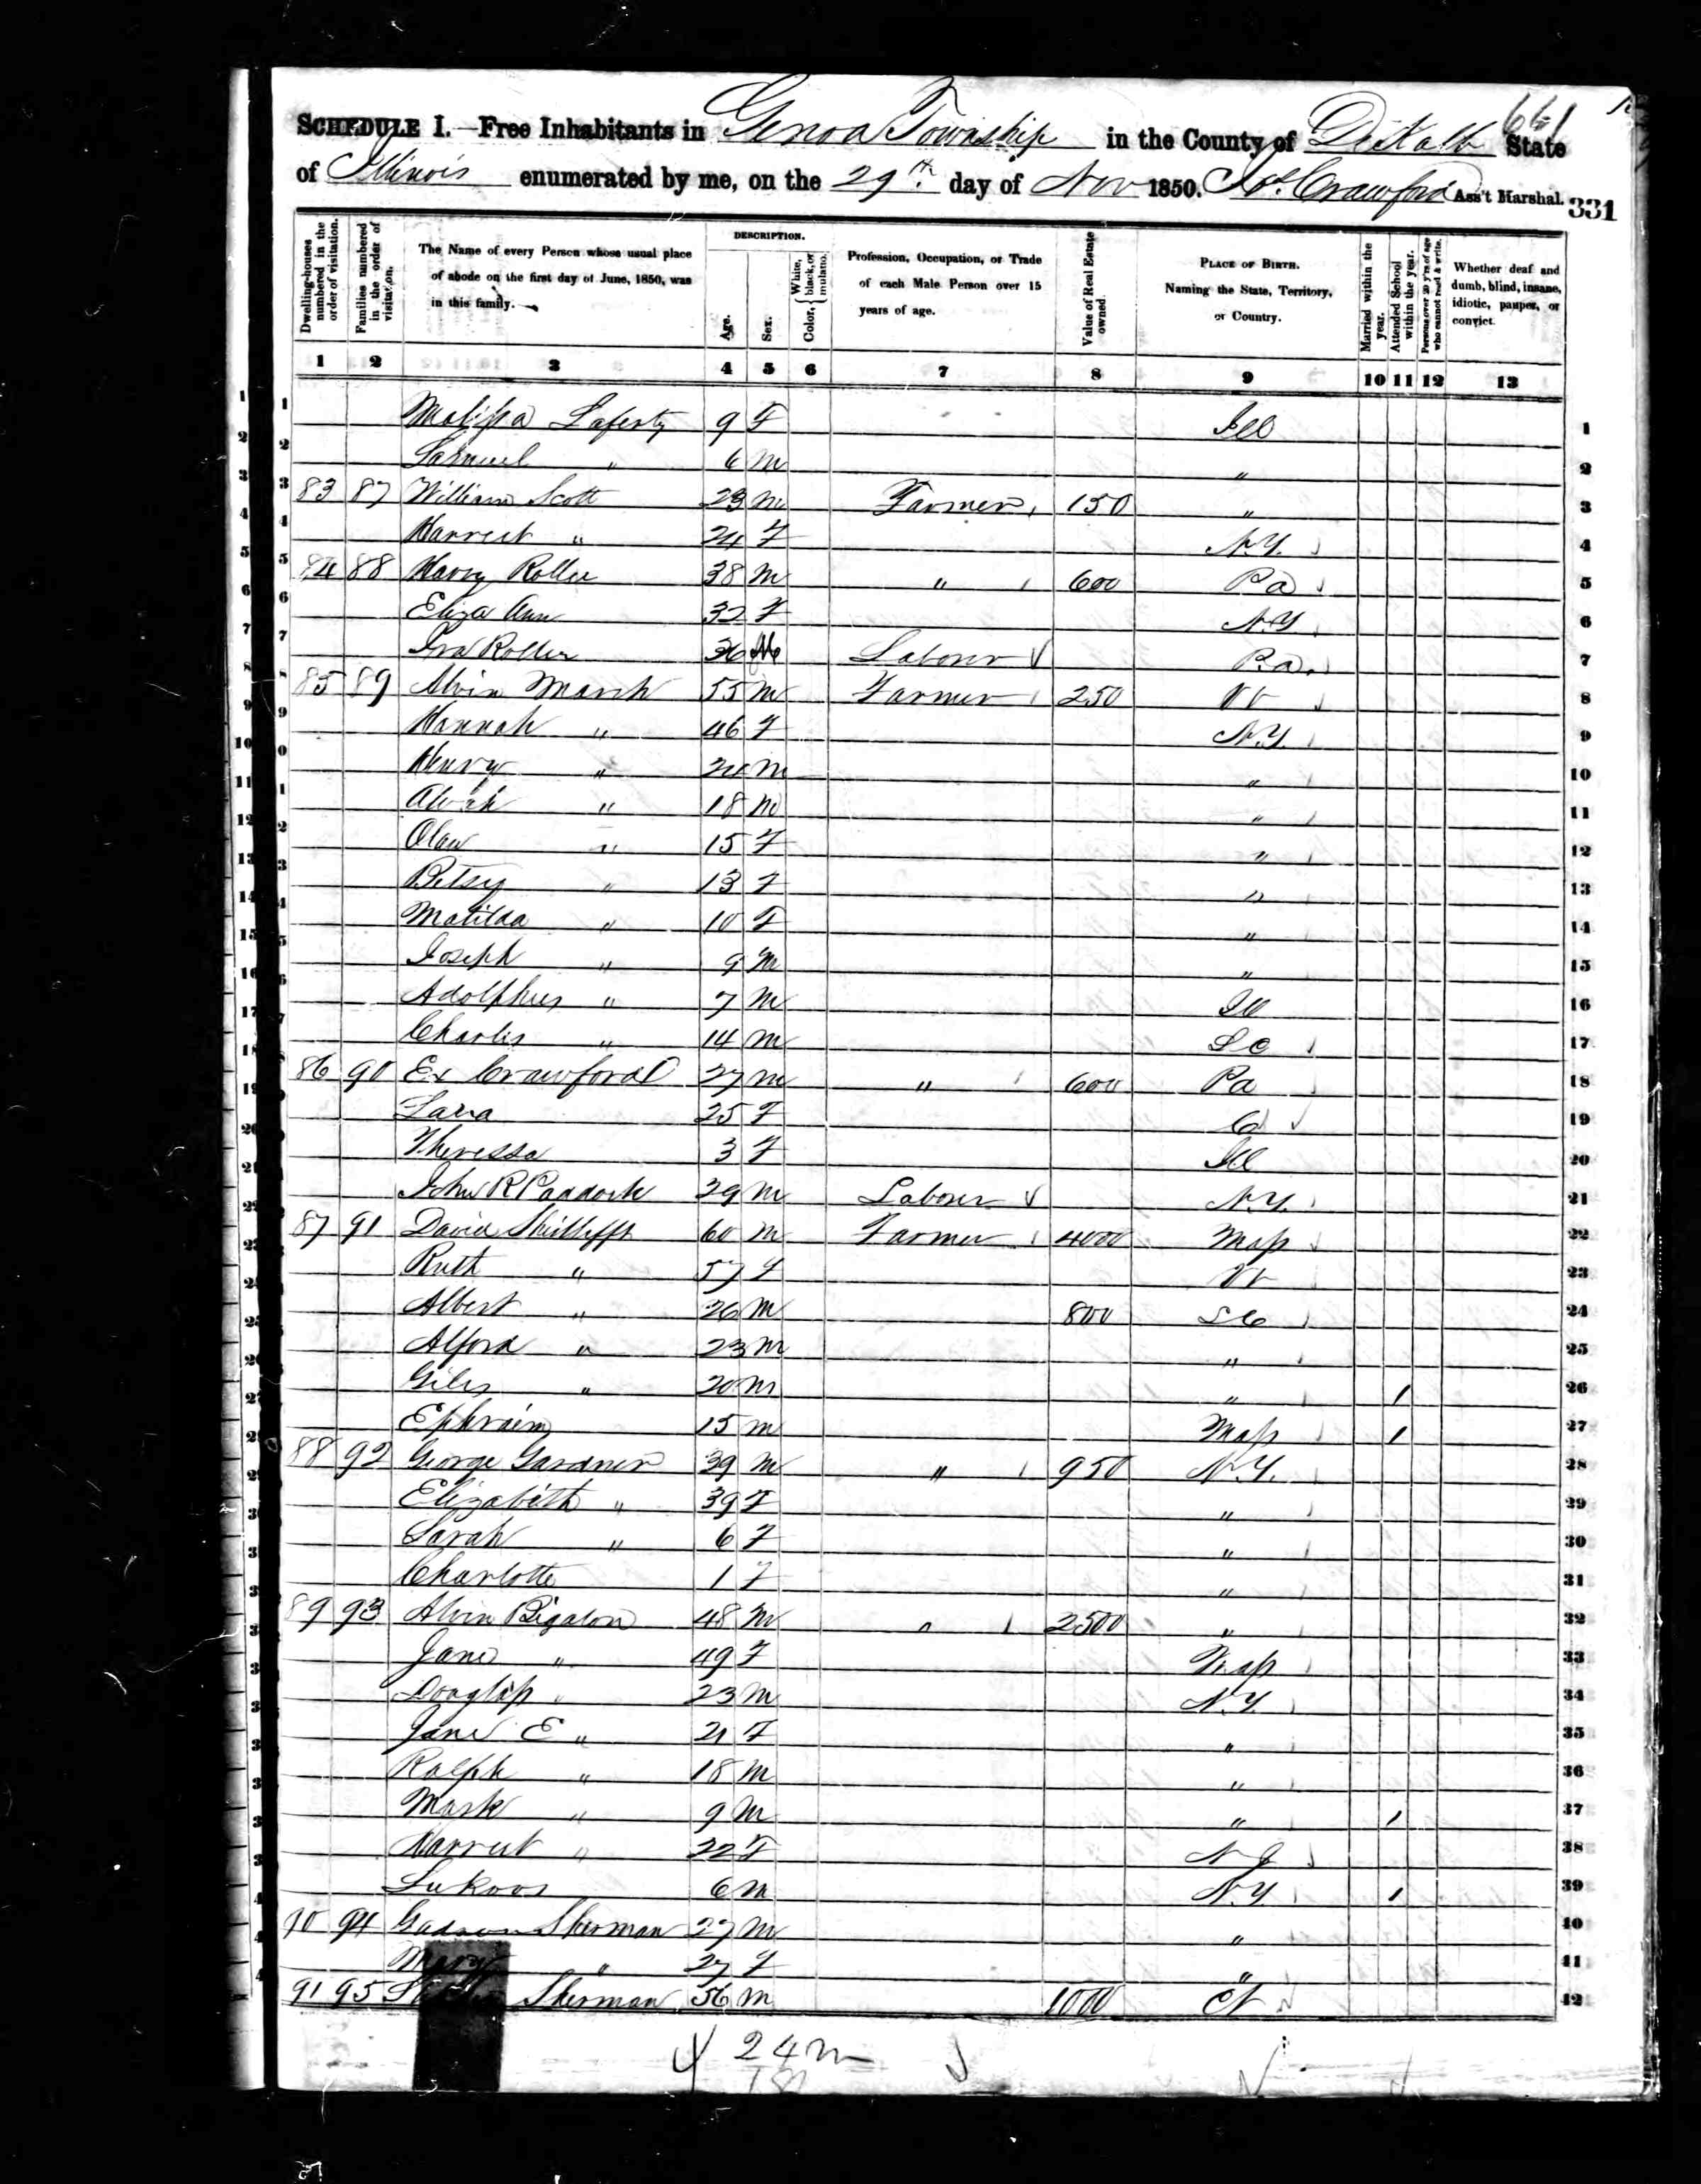 661
SCHEDULE I.—Free Inhabitants in Genoa Township in the County of DeKalb State
of Illinois enumerated by me, on the 29th. day of Nov 1850. Crawford Ass't Marshal. 331
Dwelling-houses numbered in the order of visitation.
Families numbered in the order of visitation.
The Name of every Person whose usual place of abode on the first day of June, 1850, was in this family.
DESCRIPTION.
Age.
Sex.
Color, { White, black, or mulatto.
Profession, Occupation, or Trade of each Male Person over 15 years of age.
Value of Real Estate owned.
PLACE OF BIRTH. Naming the State, Territory, or Country.
Married within the year.
Attended School within the year.
Persons over 20 y'rs of age who cannot read & write.
Whether deaf and dumb, blind, insane, idiotic, pauper, or convict.
1 2 3 4 5 6 7 8 9 10 11 12 13
1 Malissa Laferty 9 F Ill 1
2 Samuel " 6 M " 2
3 83 87 William Scott 23 M Farmer 150 " 3
4 Harriet " 24 F N.Y. 4
5 84 88 Harry Roller 38 M " 600 Pa 5
6 Eliza Ann 32 F N.Y 6
7 Ira Roller 36 M Laborer Pa. 7
8 85 89 Alvin March 55 M Farmer 250 Vt 8
9 Hannah " 46 F N.Y. 9
10 Henry " 24 M " 10
11 Alvah " 18 M " 11
12 " 15 F " 12
13 Betsey " 13 F " 13
14 Matilda " 10 F " 14
15 Joseph " 9 M " 15
16 Adolphus " 7 M Ill 16
17 Charles " 14 M 17
18 86 90 Crawford 27 M " 600 Pa 18
19 25 F 19
20 Theressa 3 F Ill 20
21 John R Paddock 29 M Laborer N.Y. 21
22 87 91 David 60 M Farmer 4000 Mass 22
23 Ruth " 57 F Vt 23
24 Albert " 26 M 800 24
25 Alford " 23 M " 25
26 Giles " 20 M " 1 26
27 Ephraim 15 M Mass 1 27
28 88 92 George Gardner 39 M " 950 N.Y. 28
29 Elizabeth " 39 F " 29
30 Sarah " 6 F " 30
31 Charlotte 1 F " 31
32 89 93 Alvin Bigalow 48 M " 2500 " 32
33 Jane " 49 F Mass 33
34 Douglass " 23 M N.Y. 34
35 Jane E " 21 F " 35
36 Ralph " 18 M " 36
37 Mark " 9 M " 1 37
38 Harriet " 22 F N J 38
39 6 M N.Y. 1 39
94 Sherman 27 M "
Mary " 27 F "
91 95 Sherman 56 M 1000 Ct
24 m